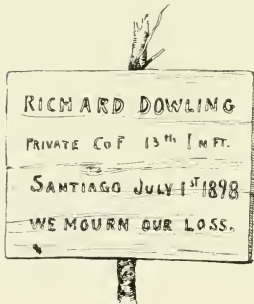 RICHARD DOWLING
PRIVATE CO F 13th INFT.
SANTIAGO JULY 1ST 1898
WE MOURN OUR LOSS.